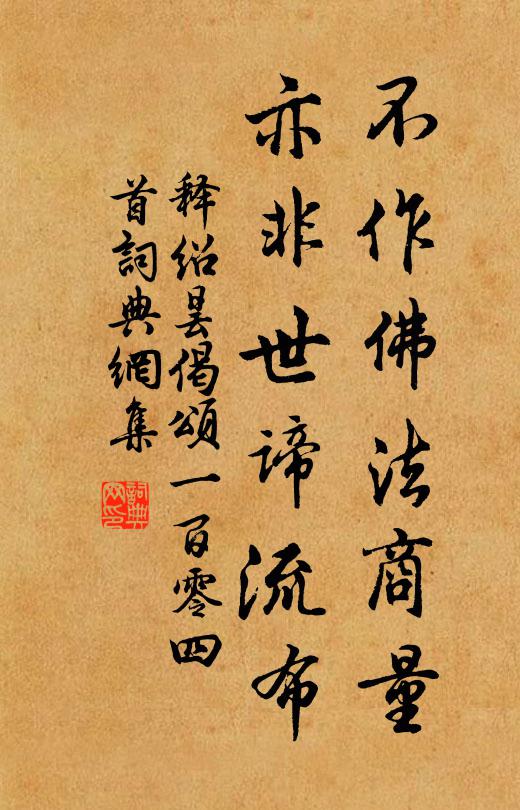 不作佛法商量
亦非世諦流布
释绍昙偈頌一百零四
首詞典網集
詞典网印